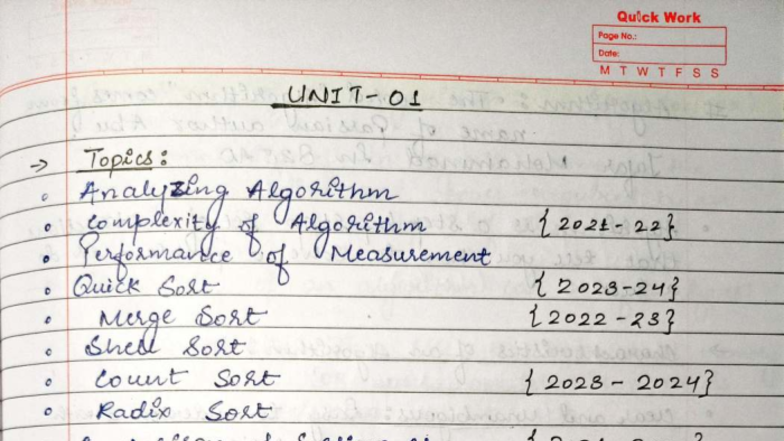 Quick Work
Page No.:
Date:
M T W T F S S
UNIT-01
→ Topics:
• Analyzing Algorithm
• Complexity of Algorithm {2021-22}
• Performance of Measurement
• Quick Sort {2023-24}
• Merge Sort {2022-23}
• Shell Sort
• Count Sort {2023-2024}
• Radix Sort